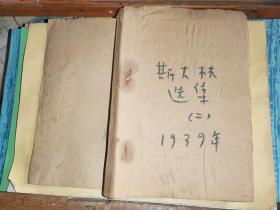 斯大林
选集
(二)
1939年